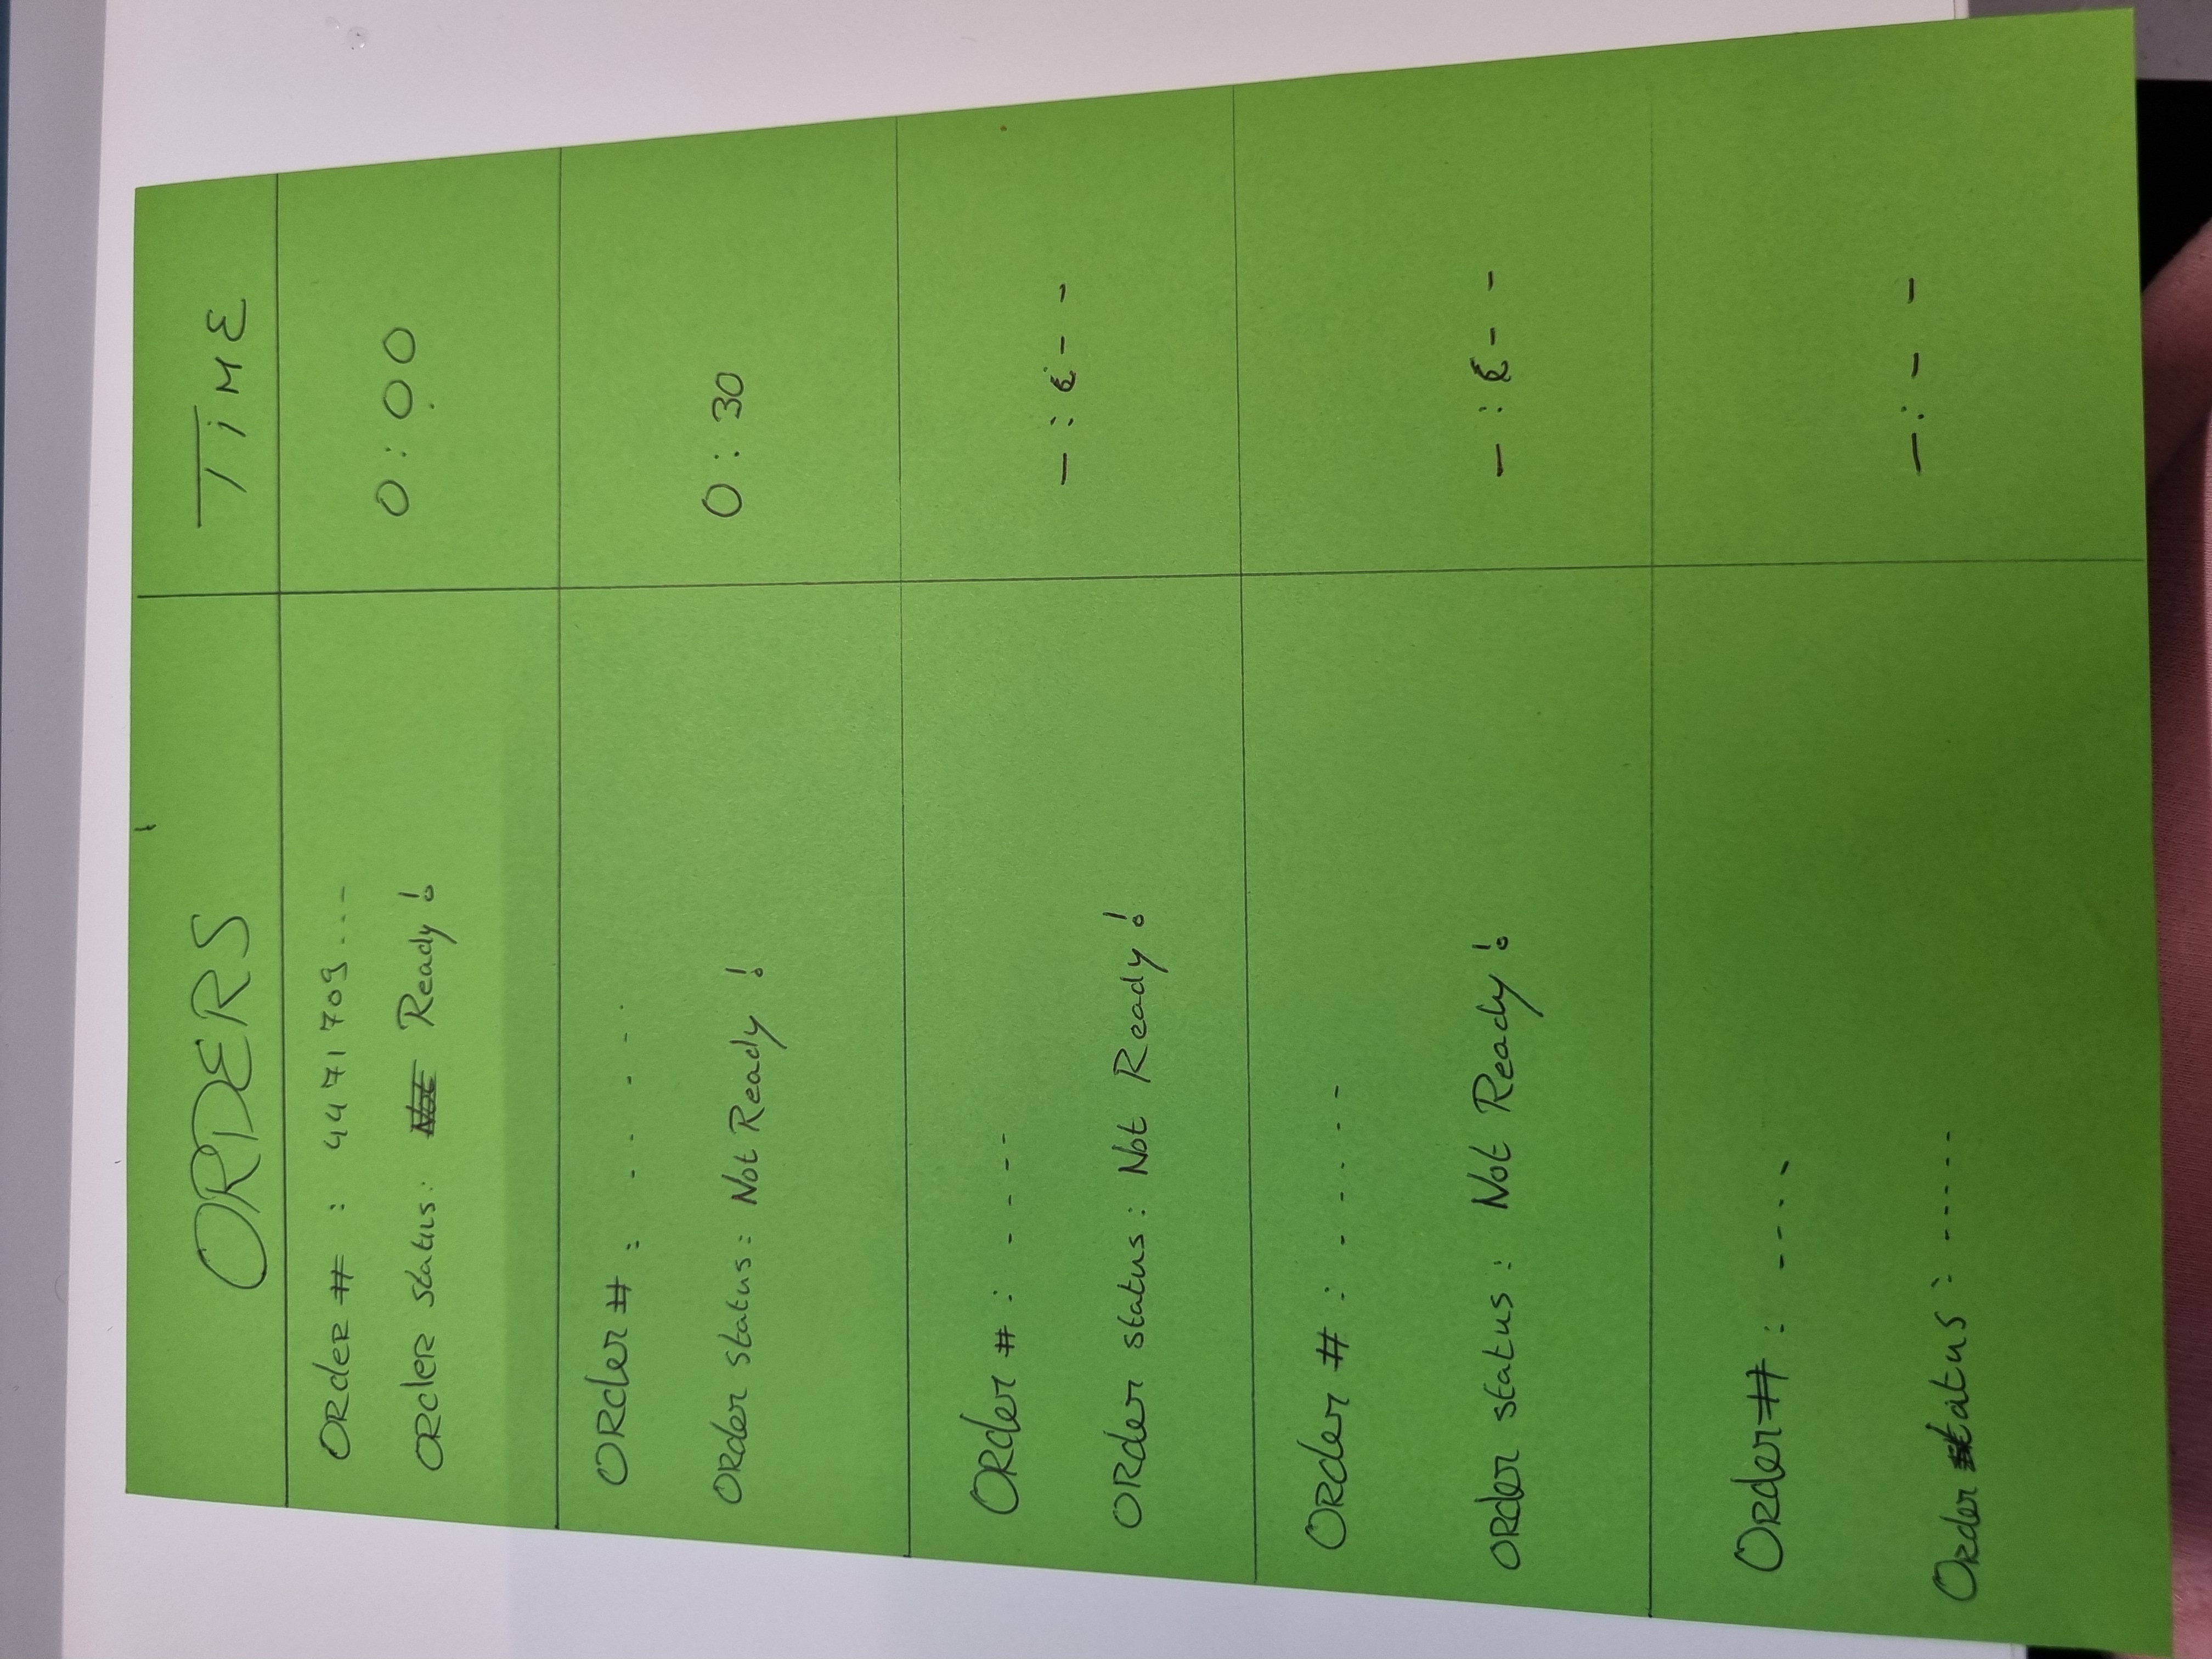 ORDERS
TiME
Order # : 4471709...
Order status: Ready!
0:00
Order # : . . . . .
Order status: Not Ready!
0:30
Order # : ----
Order status: Not Ready!
-:--
Order # : -----
Order status: Not Ready!
-:--
Order # : ----
Order status: -----
-:--